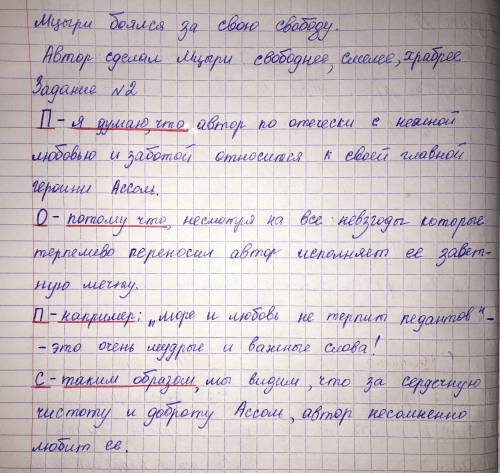 Мцыри боялся за свою свободу.
Автор сделал Мцыри свободнее, смелее, храбрее
Задание №2
П - я думаю, что автор по отечески с нежной
любовью и заботой относится к своей главной
героини Ассоль.
О - потому что, несмотря на все невзгоды которые
терпемево переносил автор исполняет ее завет-
ную мечту.
П - например: "море и любовь не терпит педантов" -
- это очень мудрые и важные слова!
С - таким образом, мы видим, что за сердечную
чистоту и доброту Ассоль, автор несомненно
любит ее.